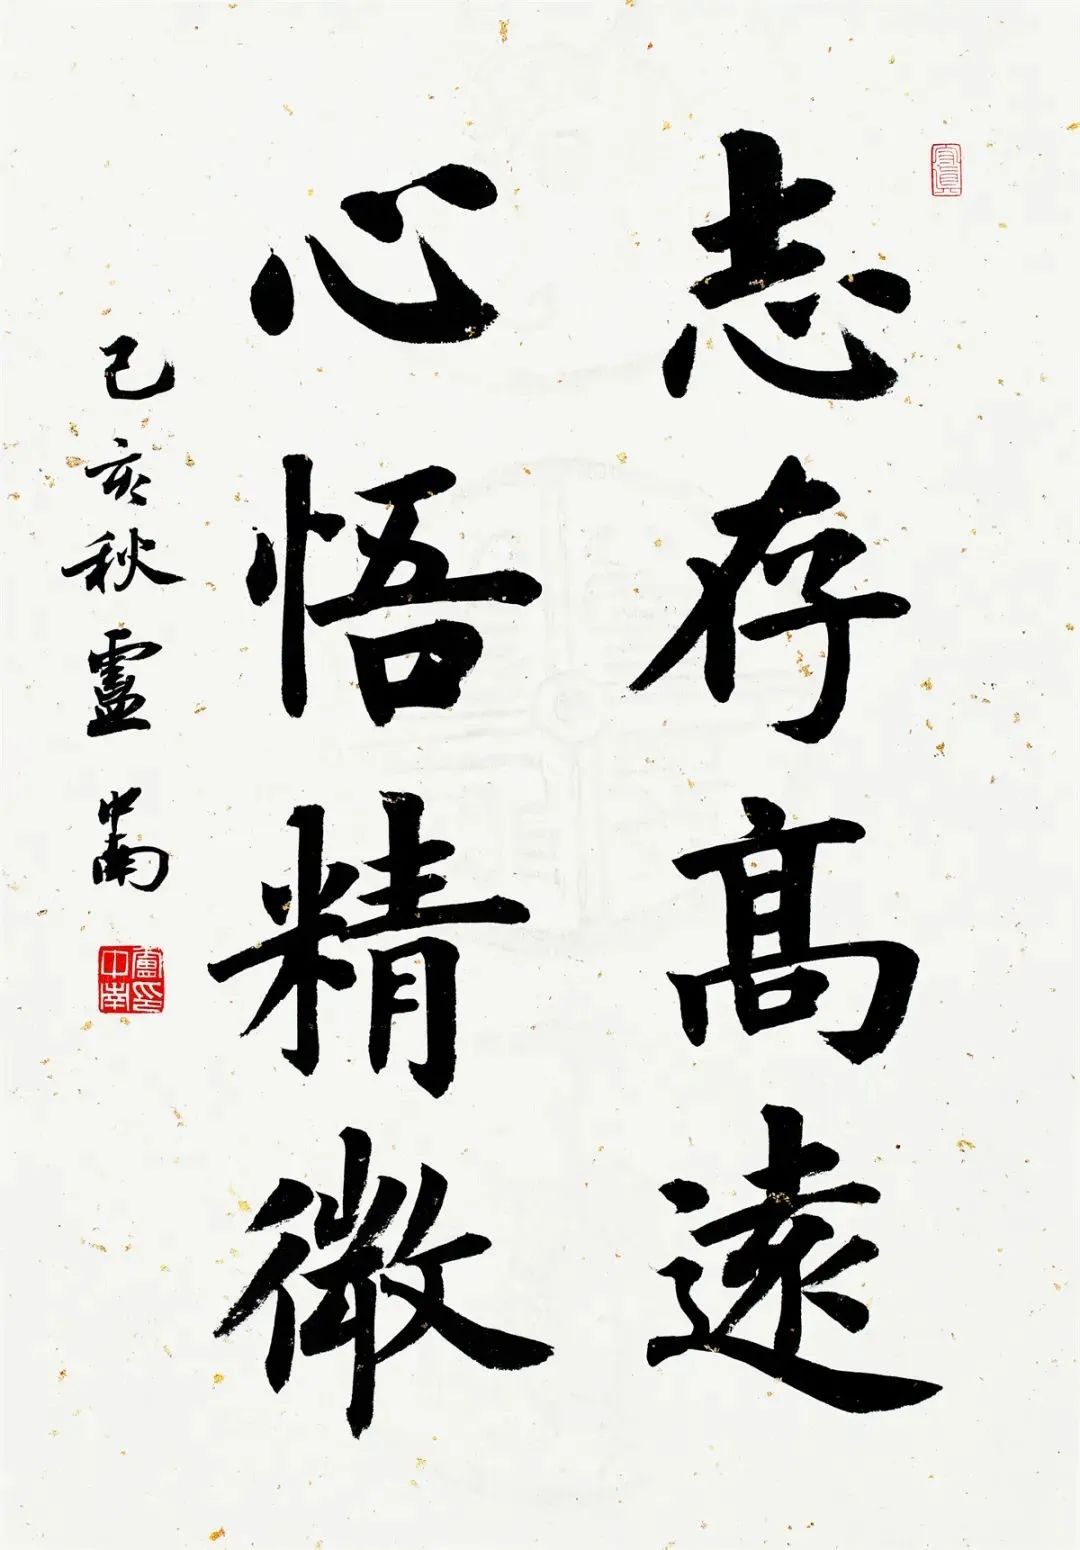 志存髙遠
心悟精微
己亥秋盧中南
盧中南印